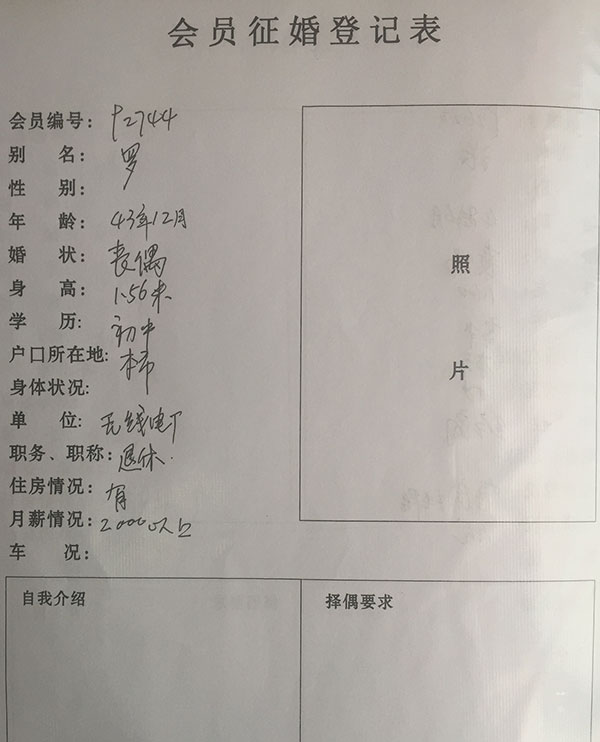 会员征婚登记表
会员编号: 12744
别 名: 罗
性 别:
年 龄: 43年12月
婚 状: 丧偶
身 高: 1.56米
学 历: 初中
户口所在地: 本市
身体状况:
单 位: 无线电厂
职务、职称: 退休.
住房情况: 有
月薪情况: 2000以上
车 况:
照
片
自我介绍
择偶要求